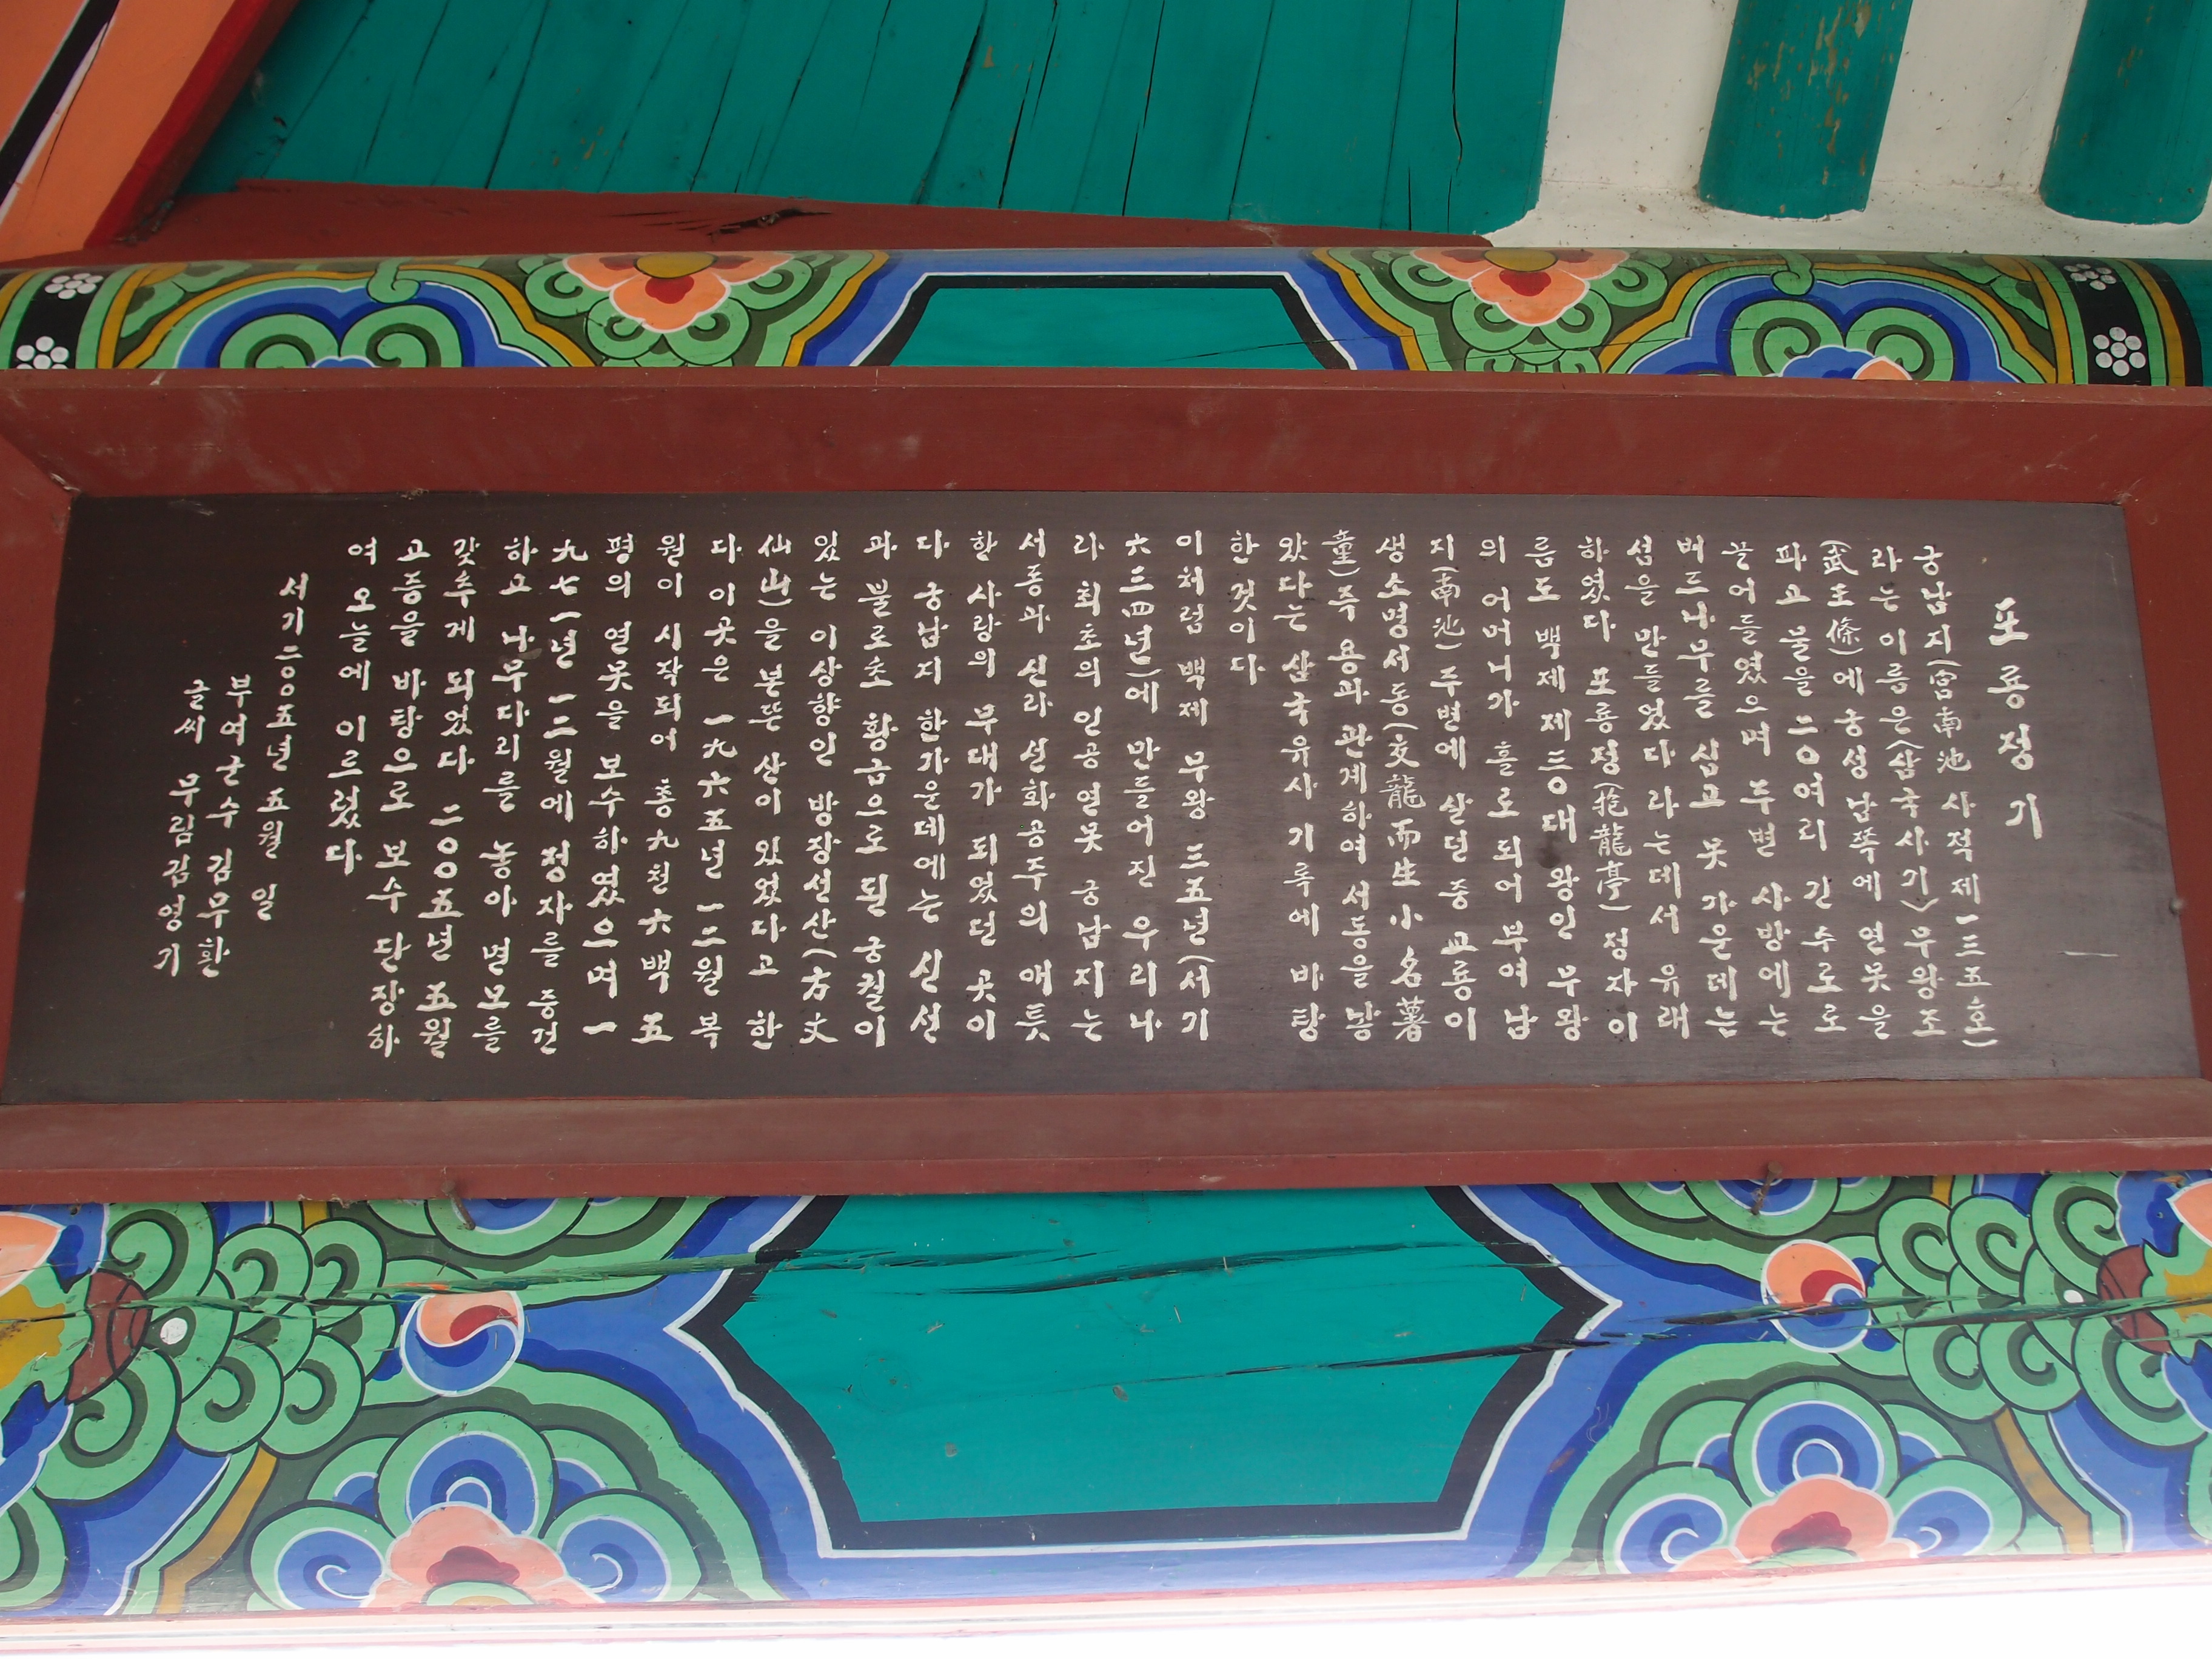 포룡정기
궁남지(宮南池 사적제一三五호)
라는 이름은〈삼국사기〉무왕조
(武王條)에 궁성남쪽에 연못을
파고 물을 二〇여리 긴수로로
끌어들였으며 주변 사방에는
버드나무를 심고 못 가운데는
섬을 만들었다 라는데서 유래
하였다. 포룡정(抱龍亭) 정자이
름도 백제 제三〇대 왕인 무왕
의 어머니가 홀로 되어 부여남
지(南池) 주변에 살던중 교룡이
생소명서동(交龍而生小名薯
童)주 용과 관계하여 서동을 낳
았다는 삼국유사 기록에 바탕
한 것이다
이처럼 백제 무왕 三五년(서기
六三四년)에 만들어진 우리나
라 최초의 인공연못 궁남지는
서동과 신라 선화공주의 애틋
한 사랑의 무대가 되었던 곳이
다. 궁남지 한가운데에는 신선
과 불로초 황금으로 된 궁궐이
있는 이상향인 방장선산(方丈
仙山)을 본뜬 산이 있었다고 한
다. 이곳은 一九六五년 一二월 복
원이 시작되어 총九천六백五
평의 연못을 보수하였으며 一
九七一년 一二월에 정자를 중건
하고 나무다리를 놓아 면모를
갖추게 되었다. 二〇〇五년 五월
고증을 바탕으로 보수 단장하
여 오늘에 이르렀다.
서기二〇〇五년 五월 일
부여군수 김무환
글씨 무림김영기